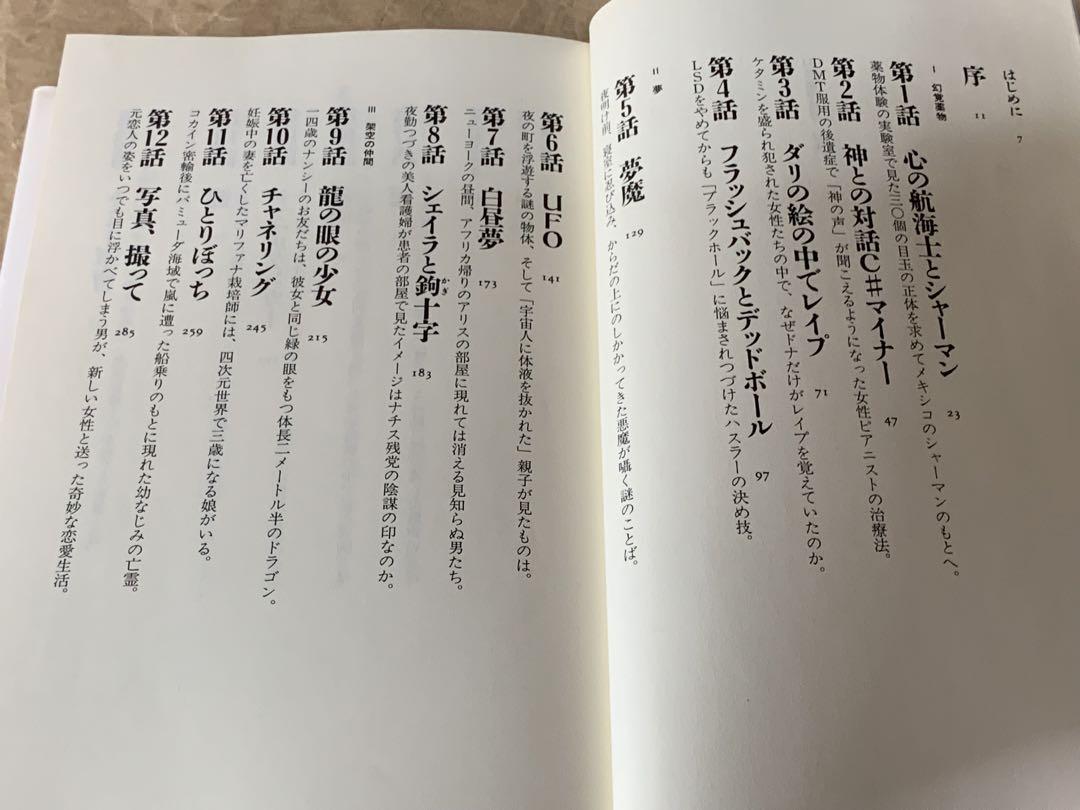 はじめに 7
序 11
I 幻覚薬物
第1話 心の航海士とシャーマン 23
薬物体験の実験室で見た三〇個の目玉の正体を求めてメキシコのシャーマンのもとへ。
第2話 神との対話C♯マイナー 47
DMT服用の後遺症で「神の声」が聞こえるようになった女性ピアニストの治療法。
第3話 ダリの絵の中でレイプ 71
ケタミンを盛られ犯された女性たちの中で、なぜドナだけがレイプを覚えていたのか。
第4話 フラッシュバックとデッドボール 97
LSDをやめてからも「ブラックホール」に悩まされつづけたハスラーの決め技。
II 夢
第5話 夢魔 129
夜明け前、寝室に忍び込み、からだの上にのしかかってきた悪魔が囁く謎のことば。
第6話 UFO 141
夜の町を浮遊する謎の物体、そして「宇宙人に体液を抜かれた」親子が見たものは。
第7話 白昼夢 173
ニューヨークの昼間、アフリカ帰りのアリスの部屋に現れては消える見知らぬ男たち。
第8話 シェイラと鉤十字 183
かぎ
夜勤つづきの美人看護婦が患者の部屋で見たイメージはナチス残党の陰謀の印なのか。
III 架空の仲間
第9話 龍の眼の少女 215
一四歳のナンシーのお友だちは、彼女と同じ緑の眼をもつ体長二メートル半のドラゴン。
第10話 チャネリング 245
妊娠中の妻を亡くしたマリファナ栽培師には、四次元世界で三歳になる娘がいる。
第11話 ひとりぼっち 259
コカイン密輸後にバミューダ海域で嵐に遭った船乗りのもとに現れた幼なじみの亡霊。
第12話 写真、撮って 285
元恋人の姿をいつでも目に浮かべてしまう男が、新しい女性と送った奇妙な恋愛生活。